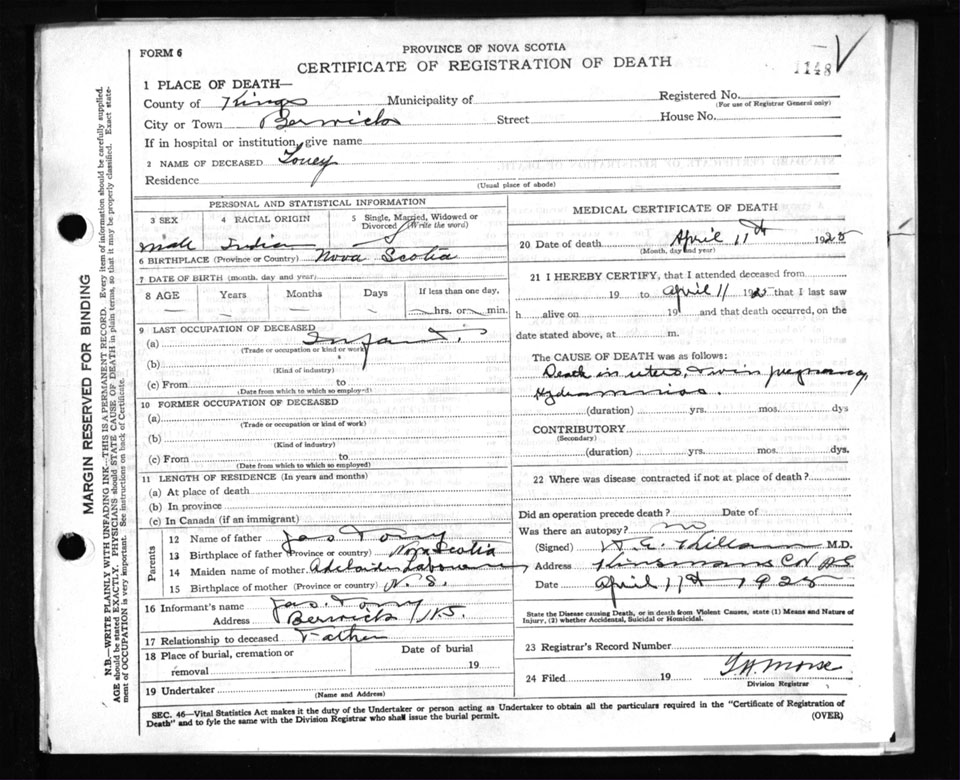 FORM 6
PROVINCE OF NOVA SCOTIA
CERTIFICATE OF REGISTRATION OF DEATH
1148
1 PLACE OF DEATH—
County of Kings Municipality of Registered No.
(For use of Registrar General only)
City or Town Berwick Street House No.
If in hospital or institution, give name
2 NAME OF DECEASED Toney
Residence
(Usual place of abode)
PERSONAL AND STATISTICAL INFORMATION
3 SEX 4 RACIAL ORIGIN 5 Single, Married, Widowed or Divorced (Write the word)
Male Indian S
6 BIRTHPLACE (Province or Country) Nova Scotia
7 DATE OF BIRTH (month, day and year)
8 AGE Years Months Days If less than one day,
— — — — hrs. or — min.
9 LAST OCCUPATION OF DECEASED
(a) Infant.
(Trade or occupation or kind or work)
(b)
(Kind of industry)
(c) From to
(Date from which to which so employed)
10 FORMER OCCUPATION OF DECEASED
(a)
(Trade or occupation or kind of work)
(b)
(Kind of industry)
(c) From to
(Date from which to which so employed)
11 LENGTH OF RESIDENCE (In years and months)
(a) At place of death
(b) In province
(c) In Canada (if an immigrant)
Parents
12 Name of father Jas Tony
13 Birthplace of father (Province or country) Nova Scotia
14 Maiden name of mother Adelaide
15 Birthplace of mother (Province or country) N.S.
16 Informant's name Jas. Tony
Address Berwick N.S.
17 Relationship to deceased Father
18 Place of burial, cremation or removal Date of burial 19
19 Undertaker
(Name and Address)
MEDICAL CERTIFICATE OF DEATH
20 Date of death April 11th 1925
(Month, day and year)
21 I HEREBY CERTIFY, that I attended deceased from
19 to April 11 1925 that I last saw
h alive on 19 and that death occurred, on the
date stated above, at m.
The CAUSE OF DEATH was as follows:
Death in utero, twin pregnancy,
Hydramnios.
(duration) yrs. mos. dys
CONTRIBUTORY
(Secondary)
(duration) yrs. mos. dys.
22 Where was disease contracted if not at place of death?
Did an operation precede death? Date of
Was there an autopsy? no
(Signed) M.D.
Address Kinsmans Cor N.S.
Date April 11th 1925
State the Disease causing Death, or in death from Violent Causes, state (1) Means and Nature of
Injury, (2) whether Accidental, Suicidal or Homicidal.
23 Registrar's Record Number
24 Filed 19 Morse
Division Registrar
SEC. 46—Vital Statistics Act makes it the duty of the Undertaker or person acting as Undertaker to obtain all the particulars required in the "Certificate of Registration of
Death" and to fyle the same with the Division Registrar who shall issue the burial permit. (OVER)
MARGIN RESERVED FOR BINDING
N.B.—WRITE PLAINLY WITH UNFADING INK—THIS IS A PERMANENT RECORD. Every item of information should be carefully supplied.
AGE should be stated EXACTLY. PHYSICIANS should STATE CAUSE OF DEATH in plain terms, so that it may be properly classified. Exact state-
ment of OCCUPATION is very important. See instructions on back of Certificate.